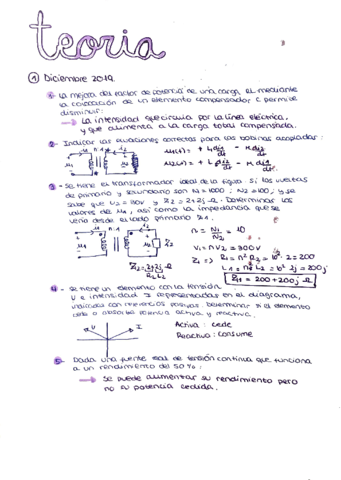 teoria
① Diciembre 2019.
1- La mejora del factor de potencia de una carga, mediante
la colocación de un elemento compensador C permite
disminuir:
→ La intensidad que circula por la línea eléctrica,
y que alimenta a la carga total compensada.
2- Indicar las ecuaciones correctas para las bobinas acopladas:
3- Se tiene el transformador ideal de la figura. Si las vueltas
de primario y secundario son N1 = 1000, N2 = 100, y se
sabe que U2 = 30V y Z2 = 2+2j Ω. Determinar los
valores de u1, así como la impedancia que se
vería desde el lado primario Z1.
n = N1/N2 = 10
Z2 = 2+2j Ω
V1 = nV2 = 300V
Z1 = 200+200j Ω
4- Se tiene un elemento con la tensión
U e intensidad I representadas en el diagrama,
indicados con referencias positivas. Determinar si el elemento
cede o absorbe potencia activa y reactiva.
V I
Activa: cede
Reactiva: consume
5- Dada una fuente real de tensión continua que funciona
a un rendimiento del 50%:
→ Se puede aumentar su rendimiento pero
no su potencia cedida.